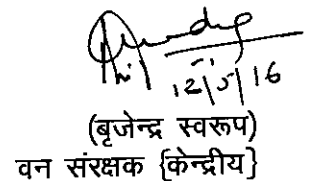 12/5/16
(बृजेन्द्र स्वरूप)
वन संरक्षक {केन्द्रीय}